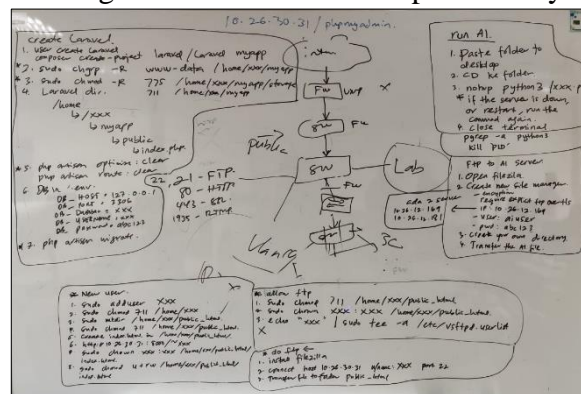 10.26.30.31 / phpmyadmin.
create Laravel
1. user create Laravel
composer create-project laravel/laravel myapp
*2. sudo chgrp -R www-data /home/xxx/myapp
*3. sudo chmod -R 775 /home/xxx/myapp/storage
4. Laravel dir. 711 /home/xxx/myapp
/home
↳ /xxx
↳ myapp
↳ public
↳ index.php
*5. php artisan optimize:clear
php artisan route:clear
6. DB in .env:
DB_HOST = 127.0.0.1
DB_PORT = 3306
xxx
abc123
*7. php artisan migrate
FW
X
SW
FW
public
SW
Lab
FW
22, 21 - FTP
80 - HTTP
443 - SSL
1935 - RTMP
run AI.
1. Paste folder to
desktop
2. CD ke folder.
3. nohup python3 /xxx.p
* if the server is down,
or restart, run the
command again.
4. Close terminal
pgrep -a python3
kill 'PID'
FTP to AI server
1. Open filezilla
2. Create new file manager
- encryption
require explicit ftp over tls
- IP: 10.26.12.169
- user: aiuser
- pwd: abc123
3. Create your own directory.
4. Transfer the AI file.
ada 2 server
10.26.12.169
* New user.
1. sudo adduser xxx
2. sudo chmod 711 /home/xxx
3. sudo mkdir /home/xxx/public_html
4. sudo chmod 711 /home/xxx/public_html
5. Create index.html in /home/xxx/public_html
6.
7. sudo chown xxx:xxx /home/xxx/public_html/
index.html
8. sudo chmod u+rw /home/xxx/public_html/
index.html
* allow ftp
1. Sudo chmod 711 /home/xxx/public_html
2. Sudo chown xxx:xxx /home/xxx/public_html/
3. echo "xxx" | sudo tee -a /etc/vsftpd.userlist
X
* do ftp
1. install filezilla
2. connect host 10.26.30.31 xxx port 22
3. Transfer file to folder public_html